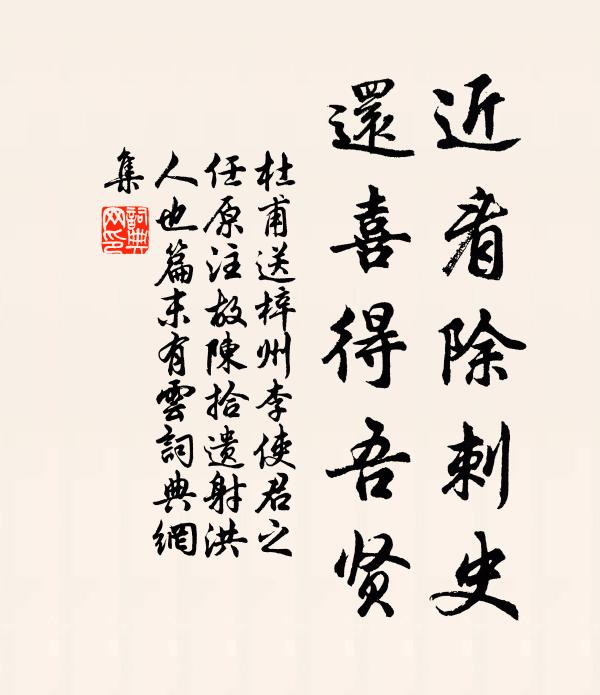 近看除刺史
還喜得吾贤
杜甫送梓州李使君之
任原注故陳拾遗射洪
人也篇末有雲詞典網
集
詞典網印